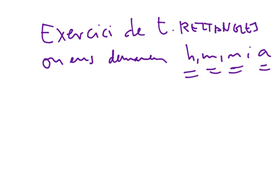 Exercici de t. RECTANGLES
on ens demanen h, m, n i a